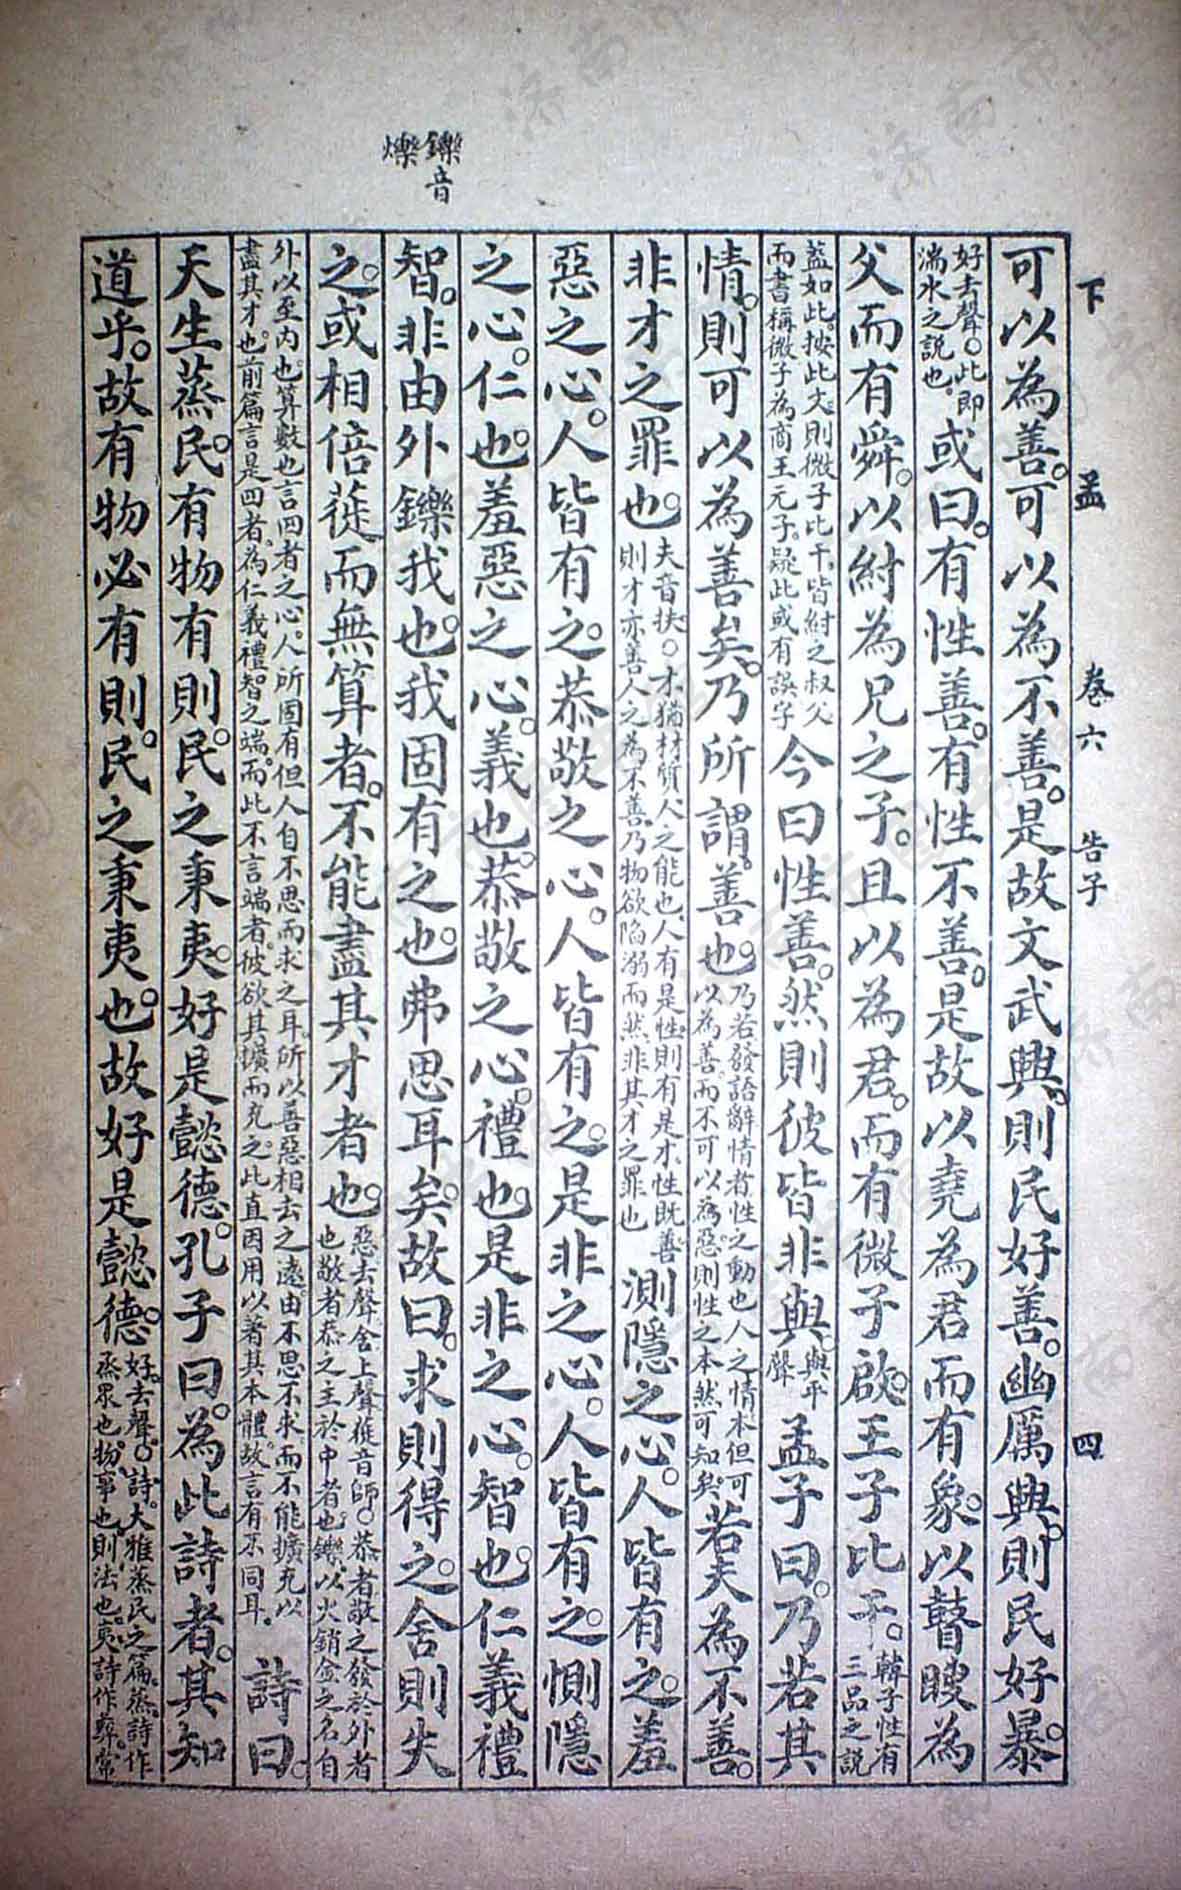 下孟　卷六　告子　四
可以為善。可以為不善。是故文武興。則民好善。幽厲興。則民好暴。
好去聲。○此即
湍水之說也。
或曰。有性善。有性不善。是故以堯為君而有象。以瞽瞍為
父而有舜。以紂為兄之子。且以為君。而有微子啟王子比干。
韓子性有
三品之說
蓋如此。按此文則微子比干。皆紂之叔父
而書稱微子為商王元子。疑此或有誤字
今曰性善。然則彼皆非與。
與平
聲
孟子曰。乃若其
情。則可以為善矣。乃所謂善也。
乃若發語辭情者性之動也人之情本但可
以為善。而不可以為惡。則性之本然可知矣。
若夫為不善。
非才之罪也。
夫音扶。○才猶材質人之能也。人有是性。則有是才。性既善
則才亦善人之為不善。乃物欲陷溺而然。非其才之罪也
惻隱之心。人皆有之。羞
惡之心。人皆有之。恭敬之心。人皆有之。是非之心。人皆有之。惻隱
之心。仁也。羞惡之心。義也。恭敬之心。禮也。是非之心。智也。仁義禮
智。非由外鑠我也。我固有之也。弗思耳矣。故曰。求則得之。舍則失
鑠音
爍
之。或相倍蓰而無算者。不能盡其才者也。
惡去聲舍上聲蓰音師。○恭者敬之發於外者
也敬者恭之主於中者也。鑠以火銷金之名自
外以至內也。算數也言四者之心。人所固有但人自不思而求之耳。所以善惡相去之遠。由不思不求而不能擴充以
盡其才也。前篇言是四者。為仁義禮智之端。而此不言端者。彼欲其擴而充之。此直因用以著其本體。故言有不同耳。
詩曰。
天生蒸民。有物有則。民之秉夷。好是懿德。孔子曰。為此詩者。其知
道乎。故有物必有則。民之秉夷也。故好是懿德。
好。去聲。○詩。大雅蒸民之篇。蒸。詩作
烝眾也。物。事也。則。法也。夷。詩作彝。常